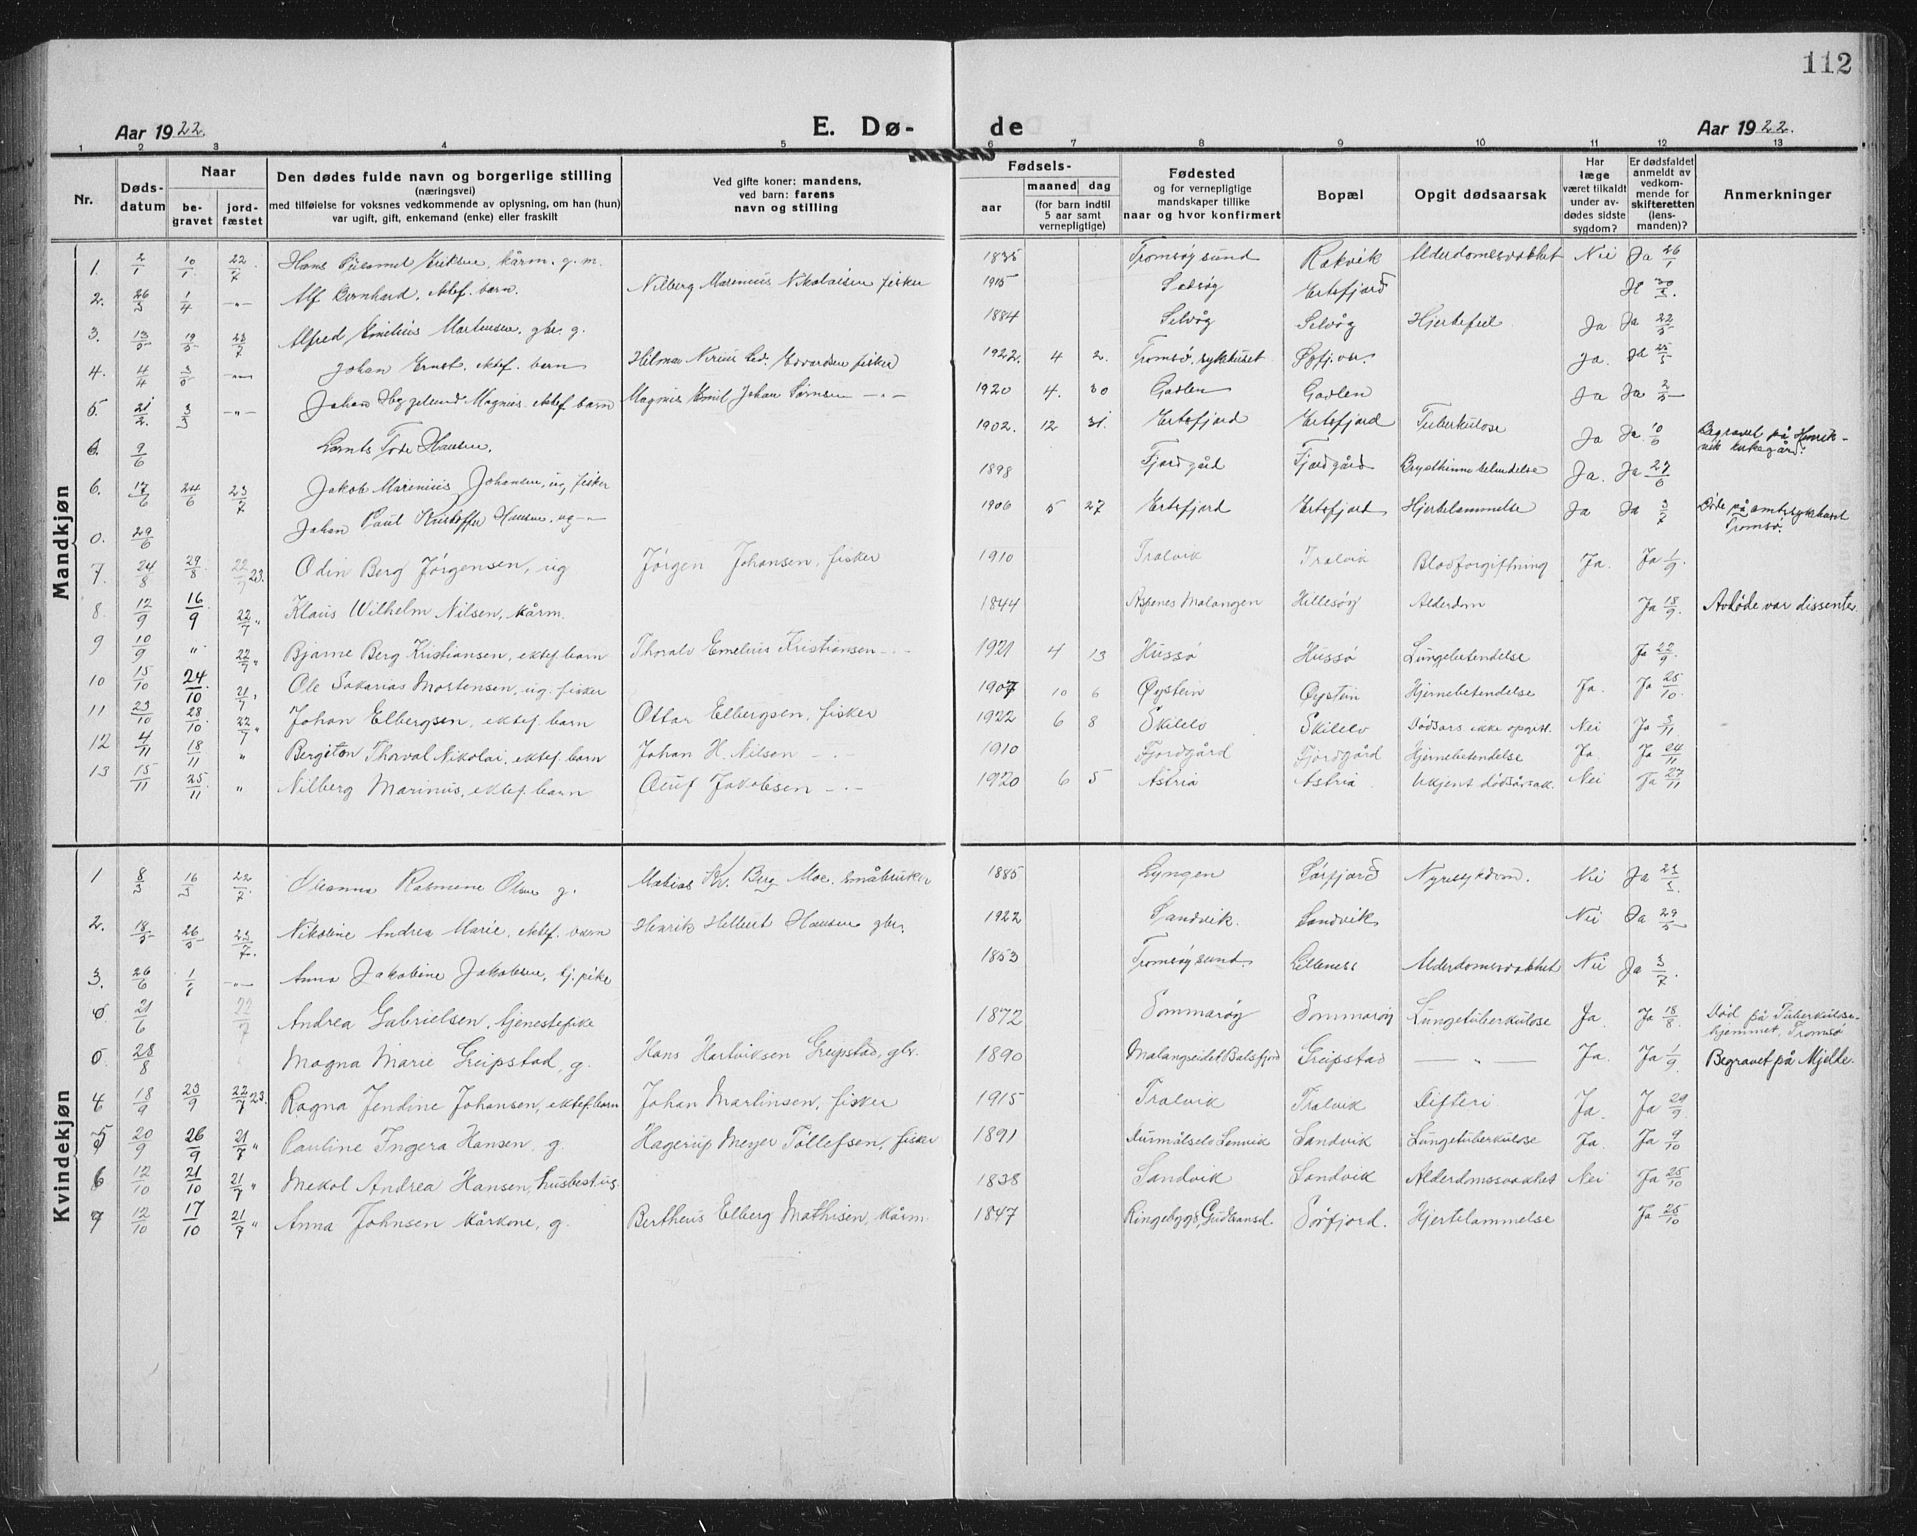 112
Aar 1922.
E. Dø-
de
Aar 1922.
1 2 3 4 5 6 7 8 9 10 11 12 13
Nr.
Døds-
datum
Naar
be-
gravet
jord-
fæstet
Den dødes fulde navn og borgerlige stilling
(næringsvei)
med tilføielse for voksnes vedkommende av oplysning, om han (hun)
var ugift, gift, enkemand (enke) eller fraskilt
Ved gifte koner: mandens,
ved barn: farens
navn og stilling
Fødsels-
aar
maaned dag
(for barn indtil
5 aar samt
vernepligtige)
Fødested
og for vernepligtige
mandskaper tillike
naar og hvor konfirmert
Bopæl
Opgit dødsaarsak
Har
læge
været tilkaldt
under av-
dødes sidste
sygdom?
Er dødsfaldet
anmeldt av
vedkom-
mende for
skifteretten
(lens-
manden)?
Anmerkninger
Mandkjøn
1. 2/1 10/1 22/7 Hans Eriksen, kårm. g. m. 1835 Tromsøysund Rakvik Alderdomssvakhet Nei Ja 26/1
2. 26/3 1/4 -"- Alf Bernhard, ektef. barn. Nilberg Marenius Nikolaisen fisker 1915 Selsøy Ersfjord 30/3
3. 13/5 19/5 23/7 Alfred Emelius Martensen, gbr. g. 1884 Selvåg Selvåg Hjertefeil Ja Ja 22/5
4. 4/4 3/5 -"- Johan Ernst, ektef. barn Hilmar Edvardsen fisker 1922. 4 2. Tromsø sykehuset Ja. Ja 25/5
5. 21/2 3/3 -"- Johan Magnus ektef. barn Magnus Emil Johan -"- 1920 4. 30 Gaslen Gaslen Ja Ja 2/5
0. 9/6 Lamts Tode Hansen. 1902. 12 31. Ersfjord Ersfjord Tuberkulose Ja Ja 10/6 Begravet på Henrik-
vik kirkegård.
6. 17/6 24/6 23/7 Jakob Marenius Johansen, ug. fisker 1898 Fjordgård Fjordgård Brysthinnebetendelse Ja. Ja 27/6
0. 29/6 Johan Paul Kristoffer Hansen, ug -"- 1906 5 27 Ersfjord Ersfjord Hjertelammelse Ja Ja 3/7 Døde på amtsykehuset
Tromsø.
7. 24/8 29/8 22/7 23. Odin Berg Jørgensen, ug Jørgen Johansen, fisker 1910 Tralvik Tralvik Blodforgiftning Ja. Ja 1/9
8 12/9 16/9 22/7 " Klaus Wilhelm Nilsen, kårm. 1844 Aspenes Malangen Hillesøy Alderdom Ja 18/9. Avdøde var dissenter.
9 10/9 " 22/7 " Bjarne Berg Kristiansen, ektef. barn Thoralv Emelius Kristiansen -"- 1921 4 13 Hussø Hussø Lungebetendelse Ja 22/9.
10 15/10 24/10 21/7 " Ole Sakarias Mortensen, ug. fisker 1907 10 6 Øystein Øystein Hjernebetendelse Ja. Ja 25/10
11 23/10 28/10 22/7 " Johan Elbergsen, ektef. barn Ottar Elbergsen, fisker 1922 6 8 Skilelv Skilelv Dødsårs. ikke opgitt. Nei Ja 3/11
12 4/11 18/11 " Bergiton Thorval Nikolai, ektef. barn Johan H. Nilsen -"- 1910 Fjordgård Fjordgård Hjernebetendelse Ja. Ja 24/11
13 15/11 25/11 " Nilberg Marinus, ektef. barn Oluf Jakobsen -"- 1920 6 5 Astria Astria Ukjent dødsårsak. Nei Ja 27/11
Kvindekjøn
1 8/3 16/3 22/7 Oleanna Rasmine Olsen g. Matias Kr. Berg Moe. småbruker 1885 Lyngen Sørfjord Nyresykdom. Nei Ja 23/3
2. 18/5 26/5 23/7. Nikoline Andrea Marie, ektef. barn Henrik Hilbert Hansen gbr. 1922 Sandvik. Sandvik Nei Ja 29/5
3. 26/6 -"- Anna Jakobine Jakobsen, tj.pike 1853 Tromsøysund. Lilleness Alderdomssvakhet Nei Ja 3/7
0 21/6 22/7 Andrea Gabrielsen, tjenestepike 1872 Sommarøy Sommarøy Lungetuberkulose Ja. Ja 18/8 Død på Tuberkulose-
hjemmet, Tromsø
0. 28/8 Magna Marie Greipstad, g. Hans Hartviksen Greipstad, gbr. 1890 Malangseidet Balsfjord Greipstad — " — Ja. Ja 1/9 Begravet på Mjelde.
4 18/9 23/9 22/7 23. Ragna Jendine Johansen, ektef. barn Johan Martinsen, fisker 1915 Tralvik Tralvik Difteri Ja. Ja 29/9.
5 20/9 26/9 21/7 " Pauline Ingera Hansen, g. Hagerup Meyer Tollefsen, fisker 1891 Aurmålselv Lenvik Sandvik Lungetuberkulose Ja. Ja 9/10
6 12/10 21/10 21/7 " Mekol Andrea Hansen, husbest. ug. 1838 Sandvik Sandvik Alderdomssvakhet Nei Ja 25/10
7 12/10 17/10 21/7 " Anna Johnsen kårkone, g. Bertheus Elberg Mathisen, kårm. 1847 Ringebygs, Gudbransd. Sørfjord. Hjertelammelse Ja 25/10